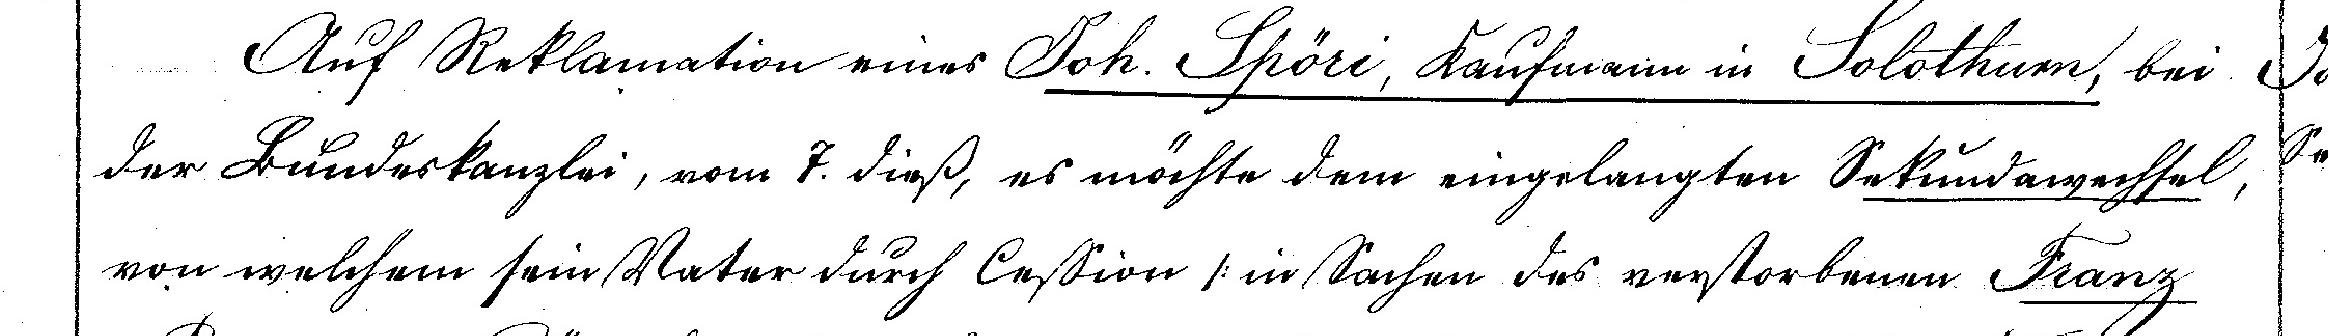 Auf Reklamation eines Joh. Spöri, Kaufmann in Solothurn, bei
der Bundeskanzlei, vom 7. dieß, es möchte dem eingelangten Sekundawechsel,
von welchem sein Vater durch Cession /: in Sachen des verstorbenen Franz